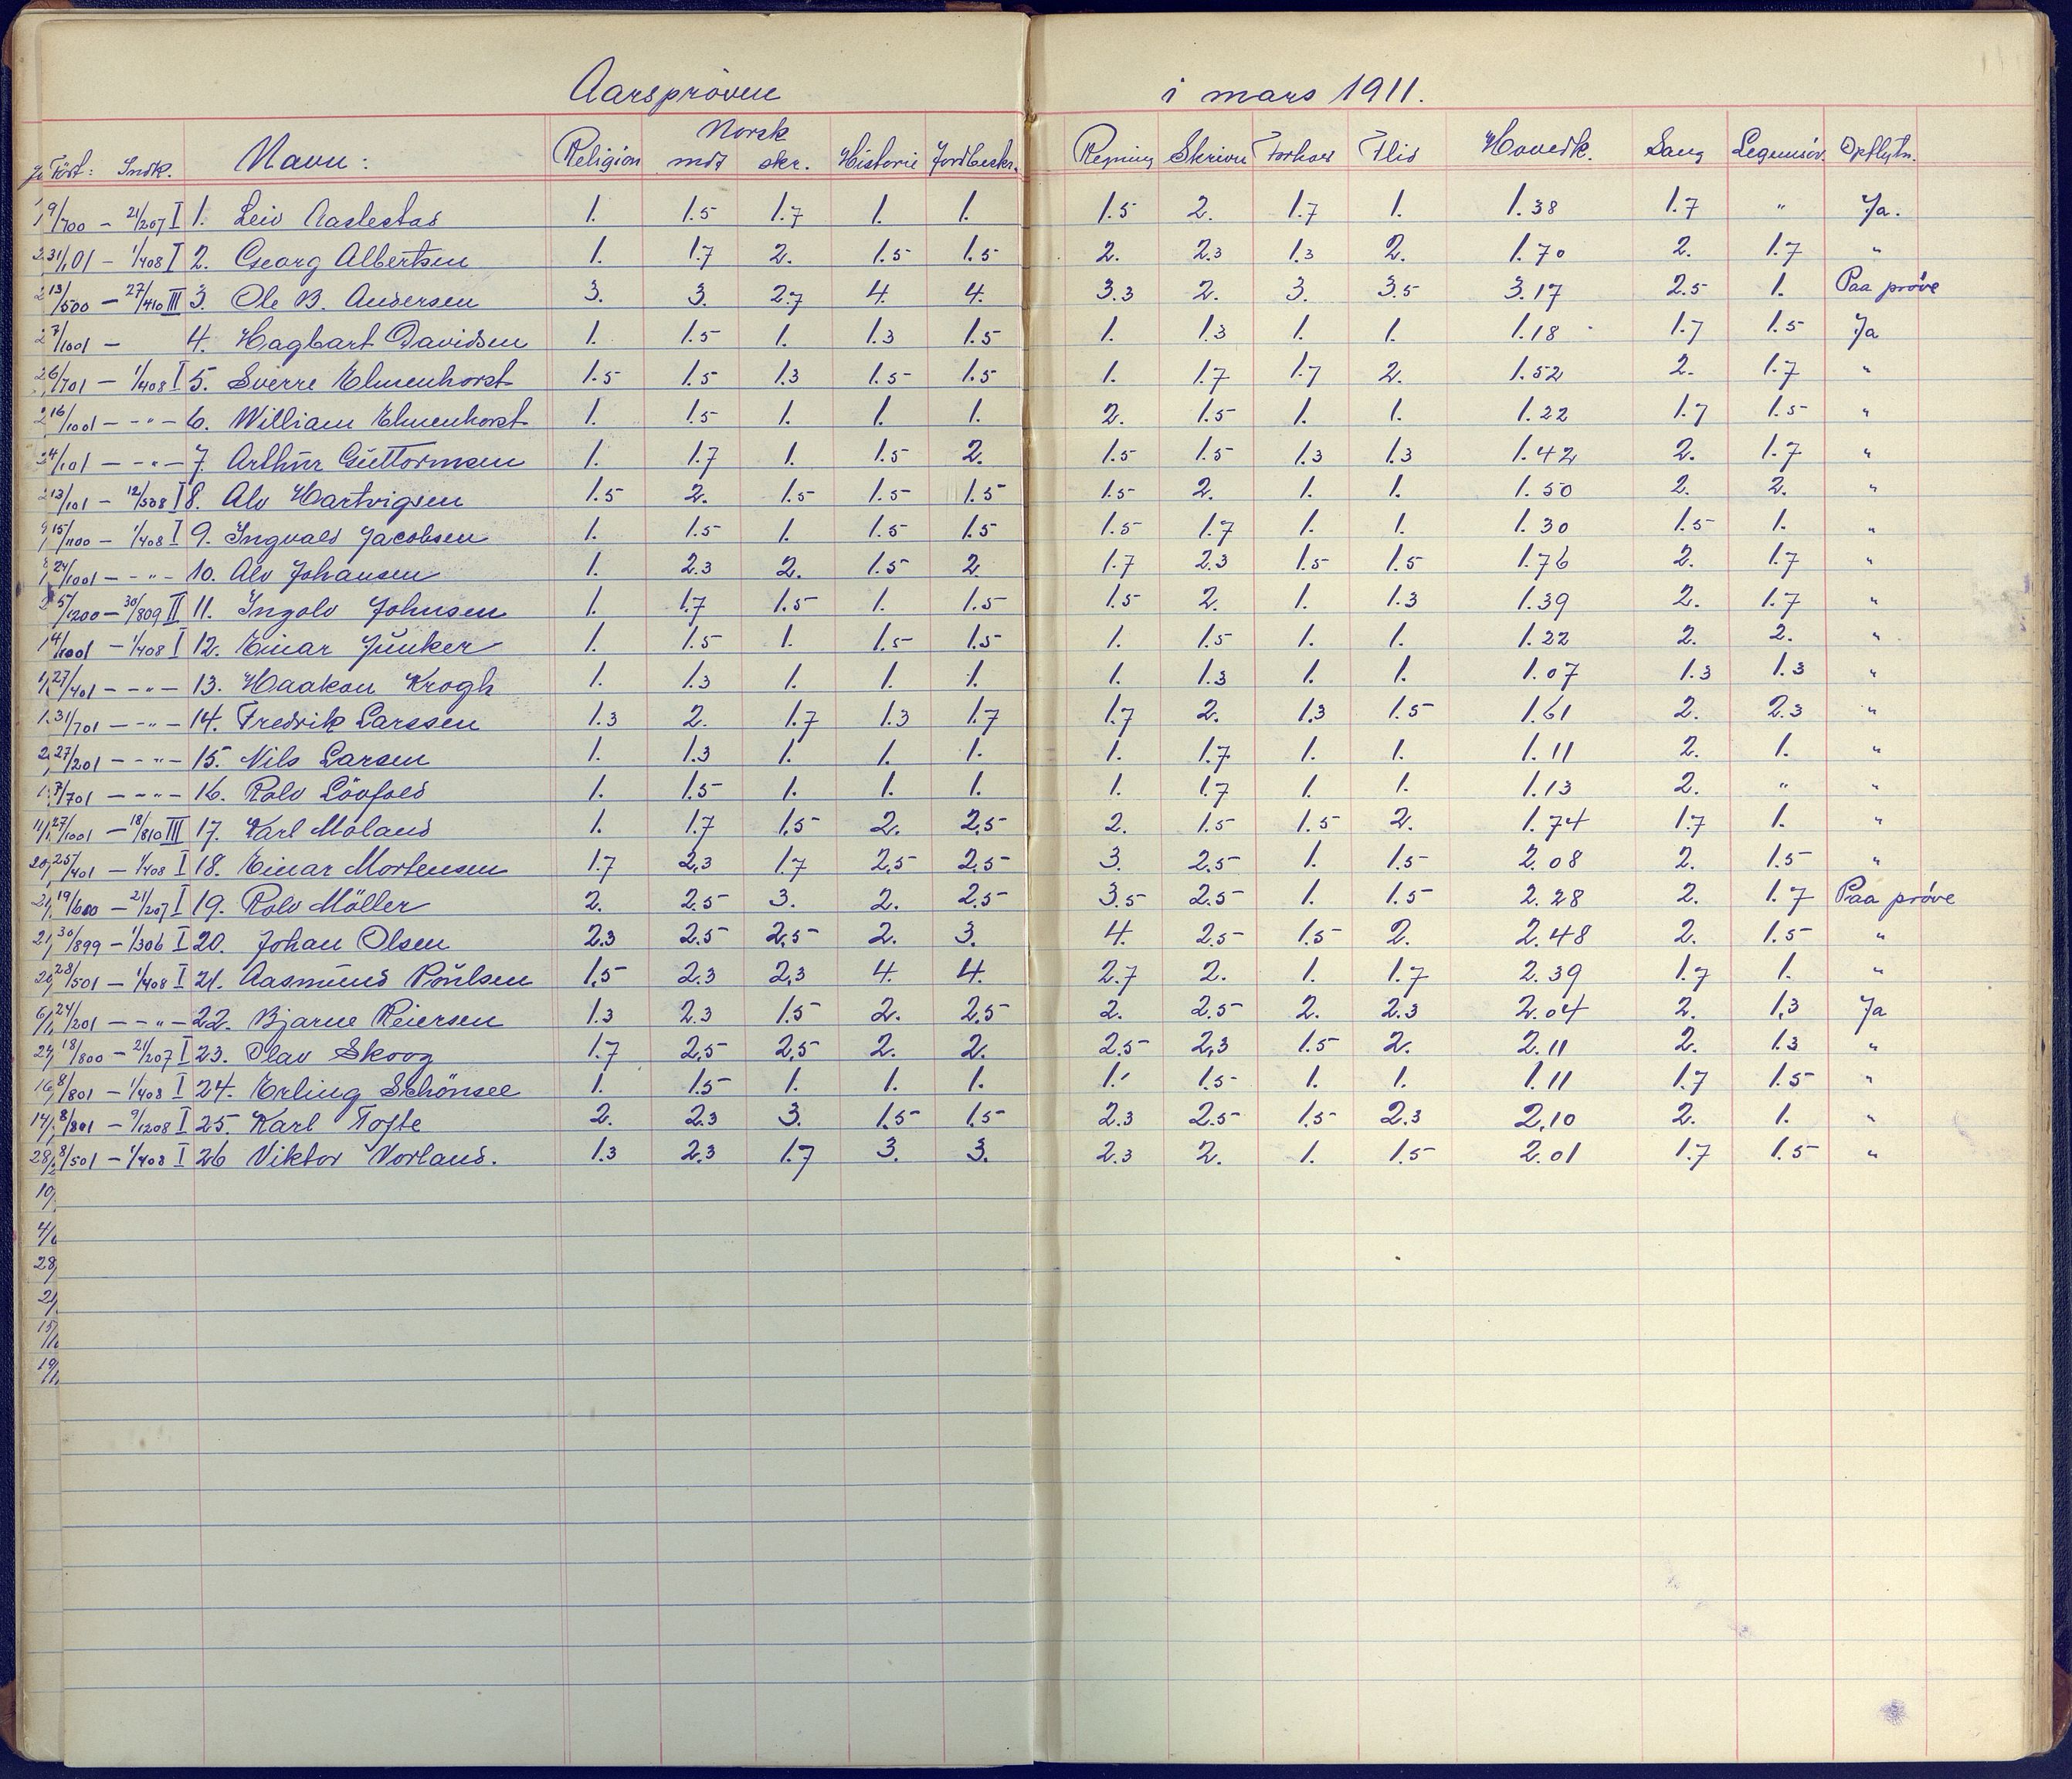 Aarsprøven i mars 1911.
Född: Indk. Navn: Religion Norsk mdt skr. Historie Jordbeskr. Regning Skrivn Forhold Flid Hovedk. Sang Legemsöv. Opflytn.
9/7 00 – 21/2 07 I 1. Leiv Aaslestad 1. 1.5 1.7 1. 1. 1.5 2. 1.7 1. 1.38 1.7 " Ja.
31/1 01 – 1/4 08 I 2. Georg Albertsen 1. 1.7 2. 1.5 1.5 2. 2.3 1.3 2. 1.70 2. 1.7 "
13/5 00 – 27/4 10 III 3. Ole B. Andersen 3. 3. 2.7 4. 4. 3.3 2. 3. 3.5 3.17 2.5 1. Paa prøve
7/10 01 – 4. Hagbart Davidsen 1. 1.5 1. 1.3 1.5 1. 1.3 1. 1. 1.18 1.7 1.5 Ja
26/7 01 – 1/4 08 I 5. Sverre Elmenhorst 1.5 1.5 1.3 1.5 1.5 1. 1.7 1.7 2. 1.52 2. 1.7 "
16/10 01 – - " - 6. William Elmenhorst 1. 1.5 1. 1. 1. 2. 1.5 1. 1. 1.22 1.7 1.5 "
4/1 01 – - " - 7. Arthur Guttormsen 1. 1.7 1. 1.5 2. 1.5 1.5 1.3 1.3 1.42 2. 1.7 "
13/1 01 – 12/5 08 I 8. Alv Hartvigsen 1.5 2. 1.5 1.5 1.5 1.5 2. 1. 1. 1.50 2. 2. "
15/11 00 – 1/4 08 I 9. Ingvald Jacobsen 1. 1.5 1. 1.5 1.5 1.5 1.7 1. 1. 1.30 1.5 1. "
24/10 01 – - " - 10. Alv Johansen 1. 2.3 2. 1.5 2. 1.7 2.3 1.5 1.5 1.76 2. 1.7 "
5/12 00 – 30/8 09 II 11. Ingolv Johnsen 1. 1.7 1.5 1. 1.5 1.5 2. 1. 1.3 1.39 2. 1.7 "
4/10 01 – 1/4 08 I 12. Einar Junker 1. 1.5 1. 1.5 1.5 1. 1.5 1. 1. 1.22 2. 2. "
27/4 01 – - " - 13. Haakon Krogh 1. 1.3 1. 1. 1. 1. 1.3 1. 1. 1.07 1.3 1.3 "
31/7 01 – - " - 14. Fredrik Larssen 1.3 2. 1.7 1.3 1.7 1.7 2. 1.3 1.5 1.61 2. 2.3 "
27/2 01 – - " - 15. Nils Larsen 1. 1.3 1. 1. 1. 1. 1.7 1. 1. 1.11 2. 1. "
7/7 01 – - " - 16. Rolv Lövfold 1. 1.5 1. 1. 1. 1. 1.7 1. 1. 1.13 2. " "
27/10 01 – 18/8 10 III 17. Karl Moland 1. 1.7 1.5 2. 2.5 2. 1.5 1.5 2. 1.74 1.7 1. "
25/4 01 – 1/4 08 I 18. Einar Mortensen 1.7 2.3 1.7 2.5 2.5 3. 2.5 1. 1.5 2.08 2. 1.5 "
19/6 00 – 21/2 07 I 19. Rolv Möller 2. 2.5 3. 2. 2.5 3.5 2.5 1. 1.5 2.28 2. 1.7 Paa prøve
30/8 99 – 1/3 06 I 20. Johan Olsen 2.3 2.5 2.5 2. 3. 4. 2.5 1.5 2. 2.48 2. 1.5 "
28/5 01 – 1/4 08 I 21. Aasmund Poulsen 1.5 2.3 2.3 4. 4. 2.7 2. 1. 1.7 2.39 1.7 1. "
24/2 01 – - " - 22. Bjarne Reiersen 1.3 2.3 1.5 2. 2.5 2. 2.5 2. 2.3 2.04 2. 1.3 Ja
18/8 00 – 21/2 07 I 23. Olav Skoog 1.7 2.5 2.5 2. 2. 2.5 2.3 1.5 2. 2.11 2. 1.3 "
8/8 01 – 1/4 08 I 24. Erling Schönsee 1. 1.5 1. 1. 1. 1. 1.5 1. 1. 1.11 1.7 1.5 "
8/8 01 – 9/12 08 I 25. Karl Tofte 2. 2.3 3. 1.5 1.5 2.3 2.5 1.5 2.3 2.10 2. 1. "
8/5 01 – 1/4 08 I 26 Viktor Vorland. 1.3 2.3 1.7 3. 3. 2.3 2. 1. 1.5 2.01 1.7 1.5 "